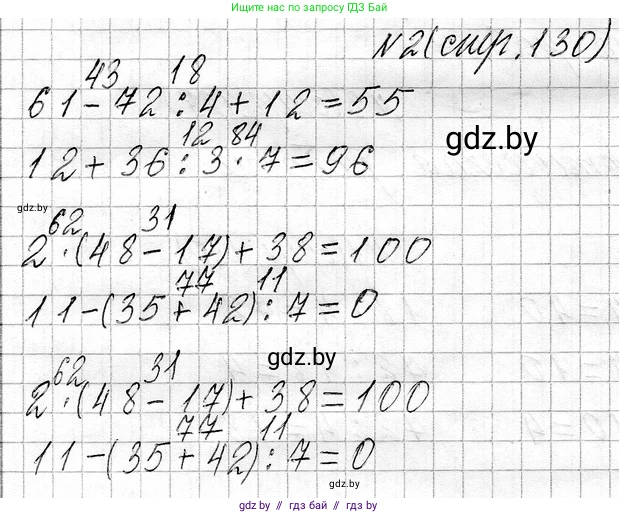 Ищите нас по запросу ГДЗ Бай
N2(стр.130)
43 18
61-72:4+12=55
gdz.by
12 84
12+36:3·7=96
gdz.by
62 31
2·(48-17)+38=100
77 11
11-(35+42):7=0
gdz.by
62 31
2·(48-17)+38=100
77 11
11-(35+42):7=0
gdz.by
gdz.by // гдз бай // гдз.бу